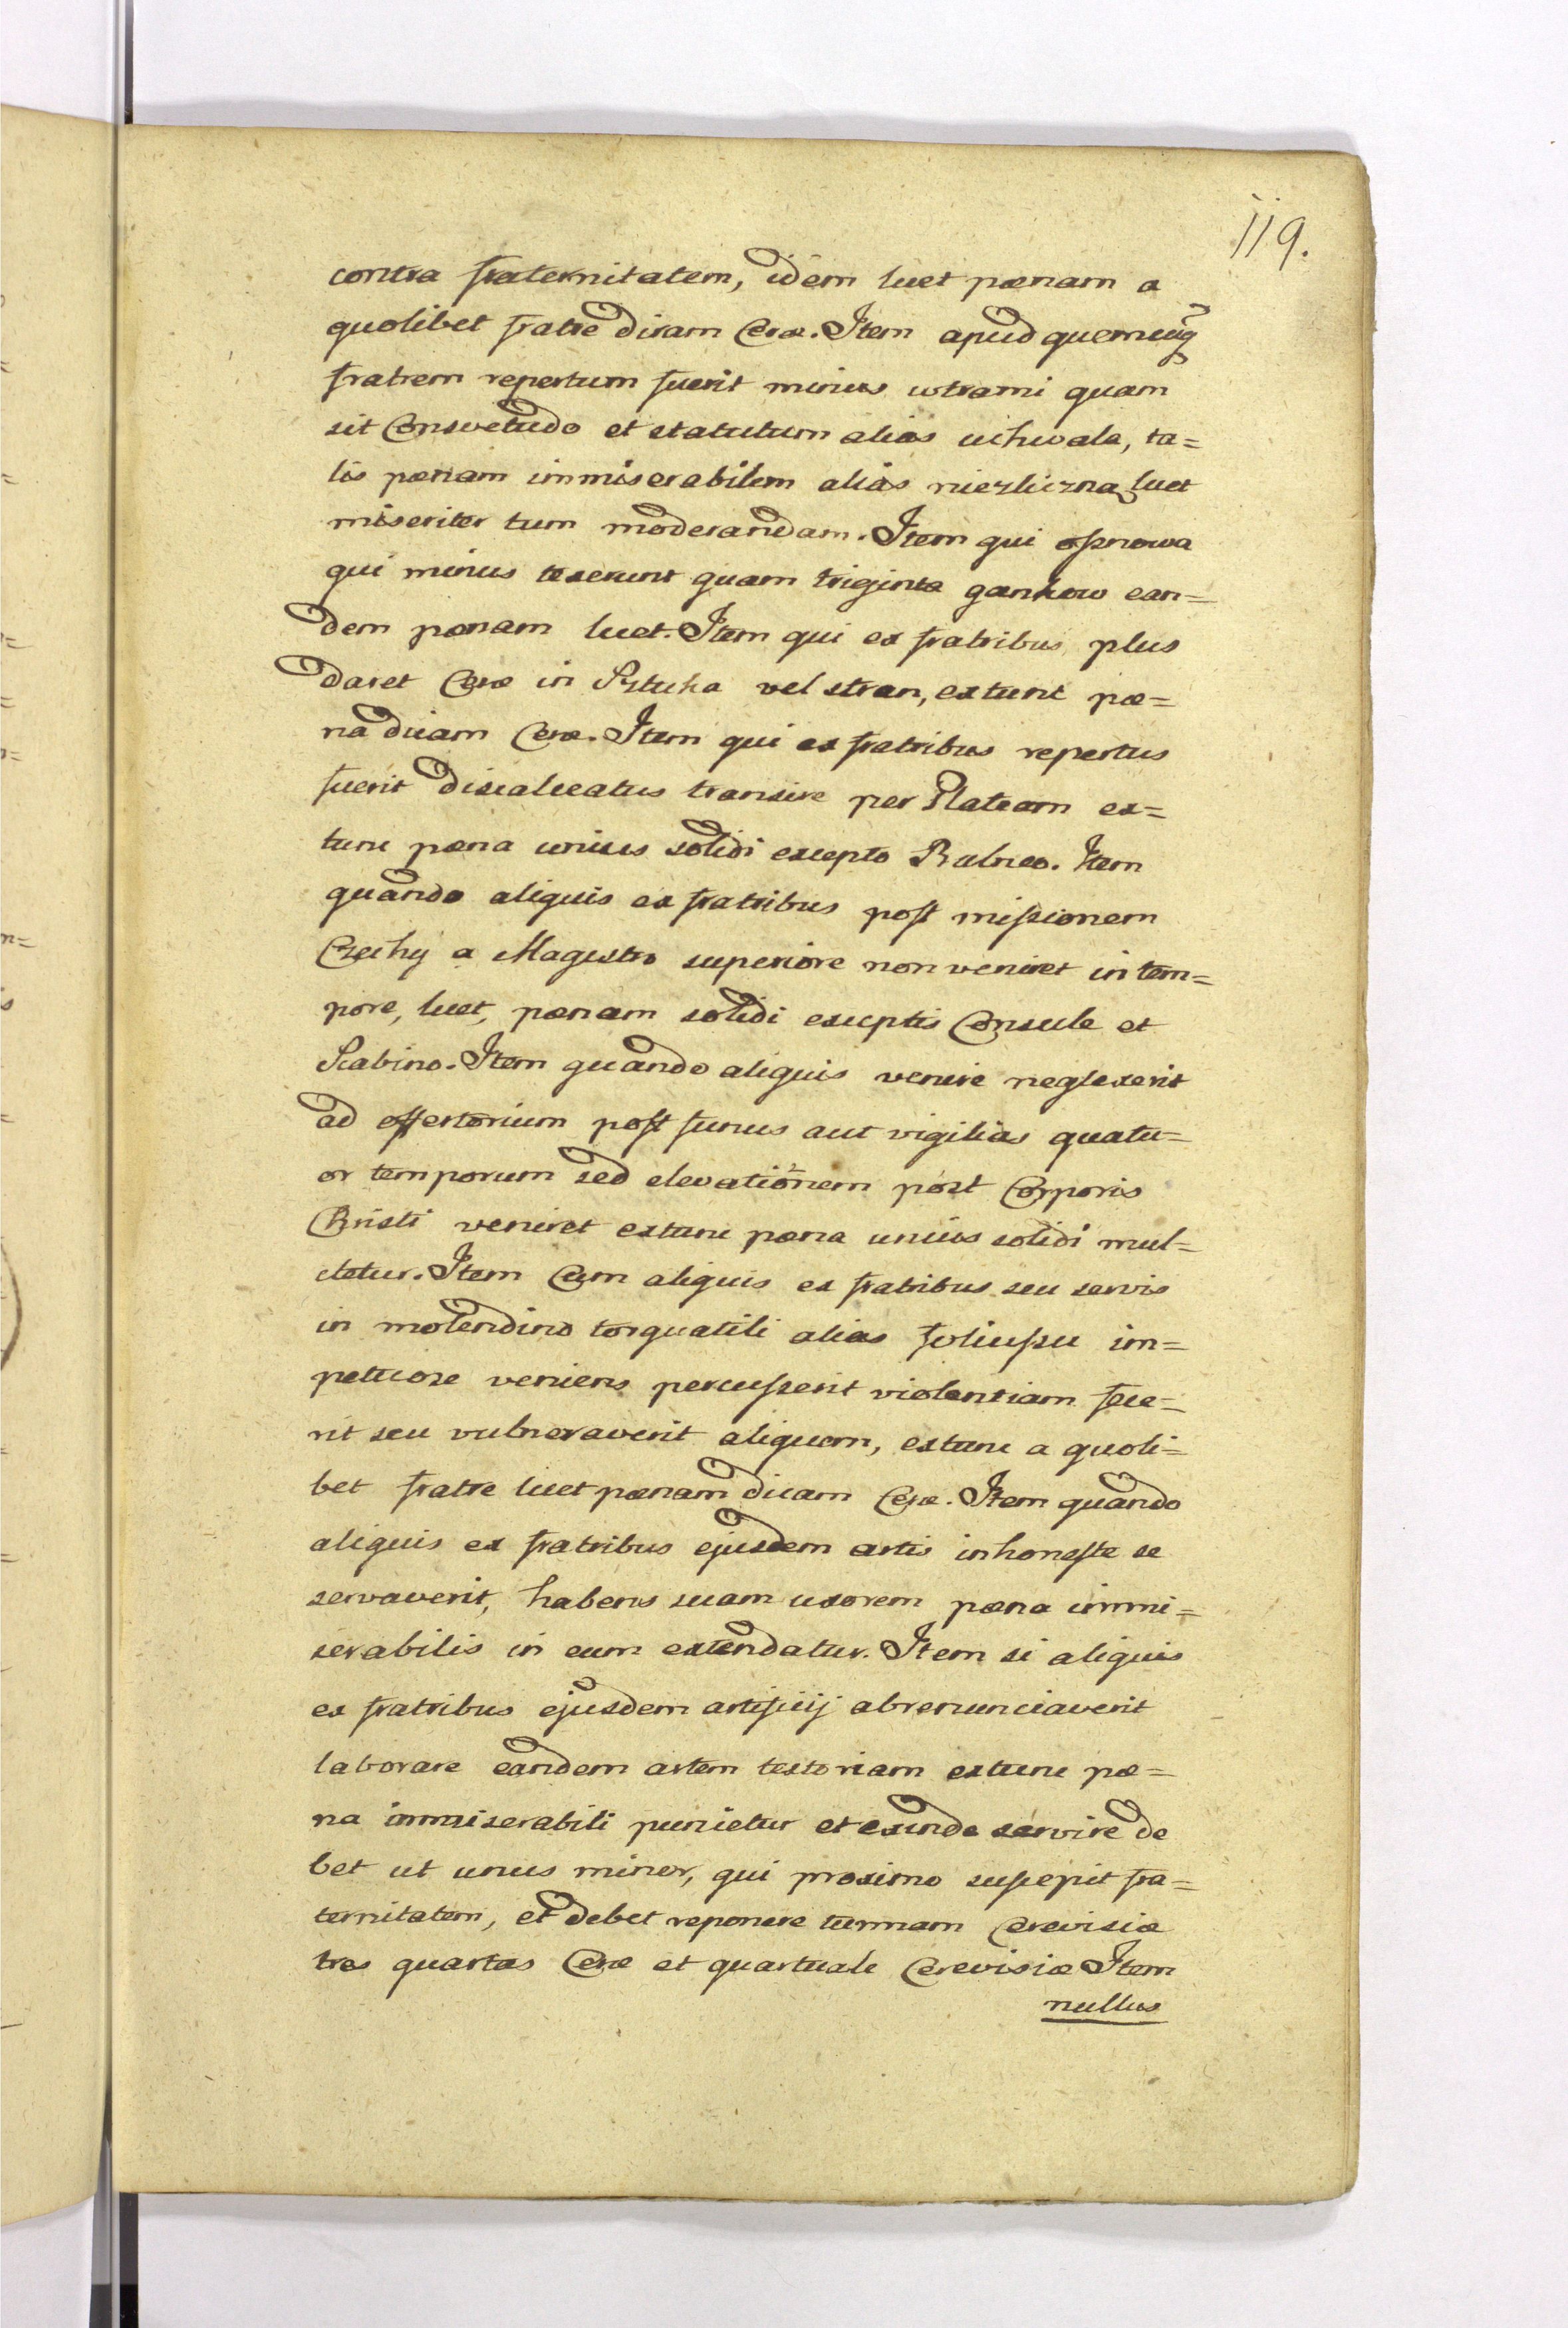 119.
contra fraternitatem, idem luet pœnam a
quolibet fratre divam Ceræ. Item apud quemcunq̃
fratrem repertum fuerit minus wtrami quam
sit Consvetudo et statutum alias uchwala, ta=
lis pœnam immiserabilem alias niezliczną luet
miseriter tum moderandam. Item qui osznowa
qui minus texerunt quam triginta gankow ean=
dem pœnam luet. Item qui ex fratribus plus
daret Ceræ in Sztuka vel stran, extunc pœ=
na duam Ceræ. Item qui ex fratribus repertus
fuerit discalceatus transire per Plateam ex=
tunc pœna unius solidi excepto Balneo. Item
quando aliquis ex fratribus post missionem
Czechy a Magistro superiore non veniret in tem=
pore, luet, pœnam solidi exceptis Consule et
Scabino. Item quando aliquis venire neglexerit
ad offertorium post funus aut vigilias quatu=
or temporum sed elevationem post Corporis
Christi veniret extunc pœna unius solidi mul=
ctetur. Item Cum aliquis ex fratribus seu servis
in molendino torquatili alias foliuszu im=
petuose veniens percusserit violentiam fece=
rit seu vulneraverit aliquem, extunc a quoli=
bet fratre luet pœnam duam Ceræ. Item quando
aliquis ex fratribus ejusdem artis inhoneste se
servaverit, habens suam uxorem pœna immi=
serabilis in eum extendatur. Item si aliquis
ex fratribus ejusdem artificij abrenunciaverit
laborare eandem artem textoriam extunc pœ=
na immiserabili punietur et exinde servire de
bet ut unus minor, qui proximo suscepit fra=
ternitatem, et debet reponere tunnam Cerevisiæ
tres quartas Ceræ et quartuale Cerevisiæ Item
nullus